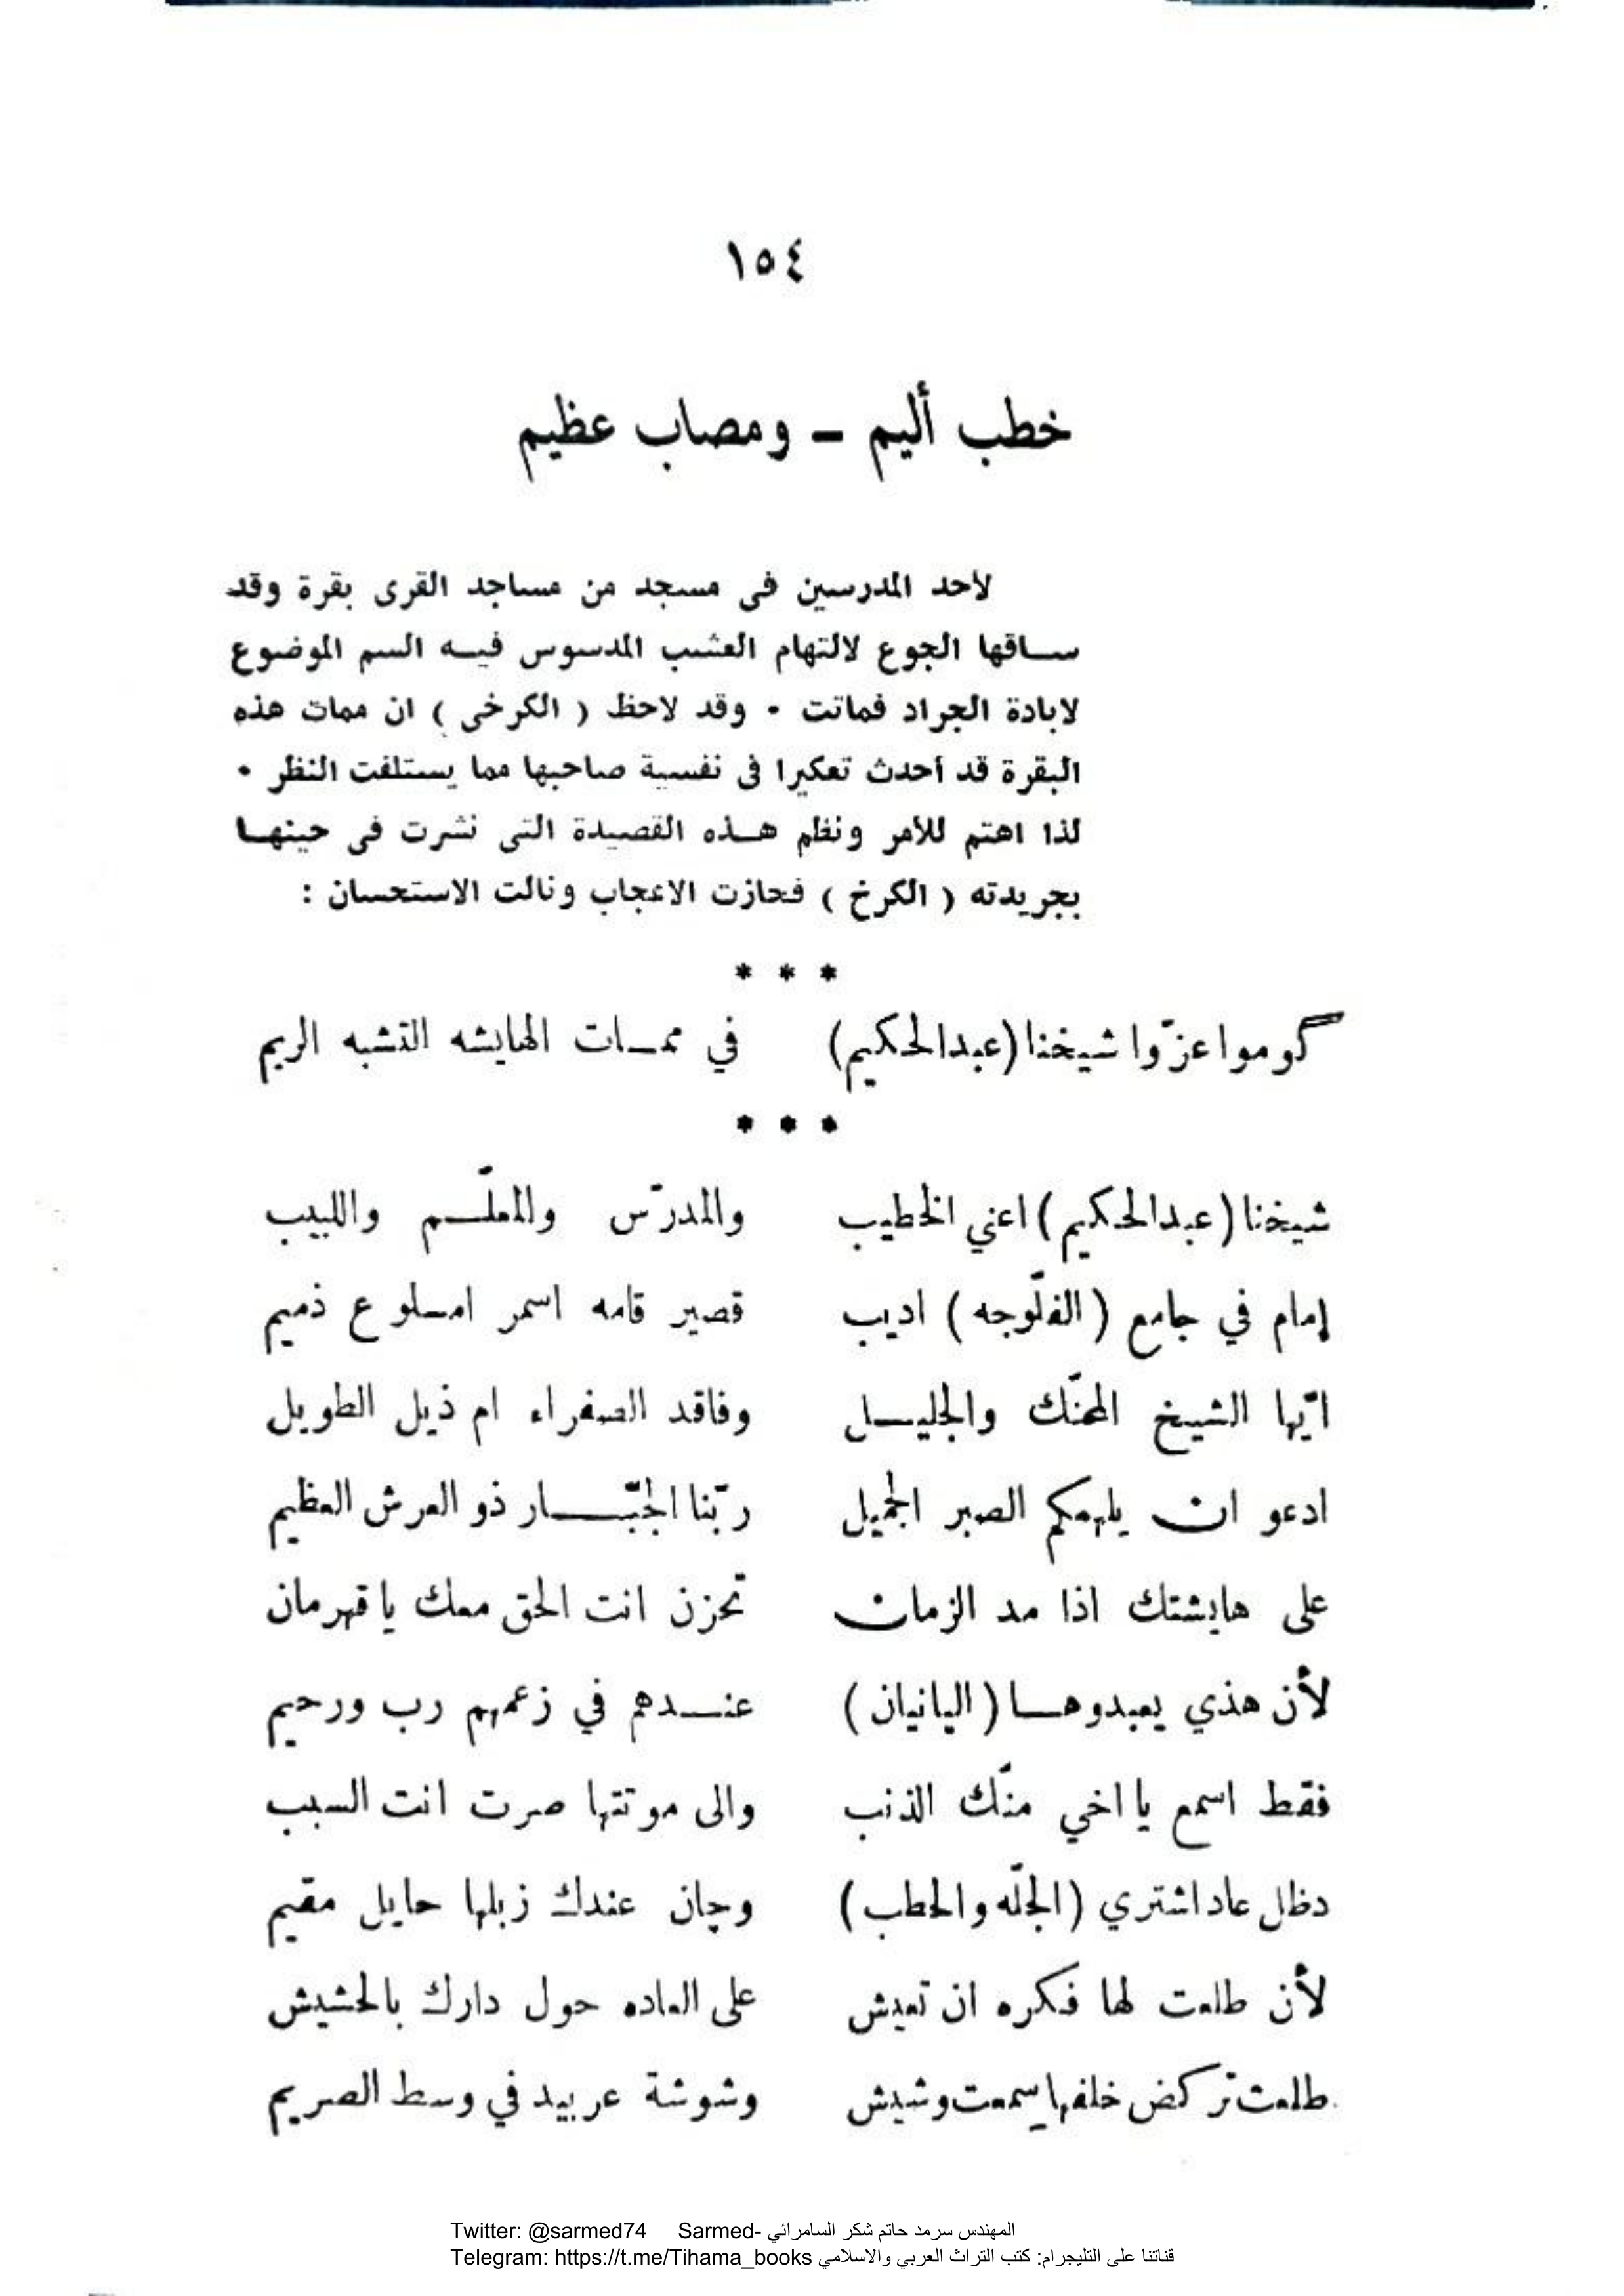 ١٥٤
خطب أليم – ومصاب عظيم
لأحد المدرسين في مسجد من مساجد القرى بقرة وقد
ساقها الجوع لالتهام العشب المدسوس فيه السم الموضوع
لابادة الجراد فماتت . وقد لاحظ ( الكرخي ) ان ممات هذه
البقرة قد أحدث تعكيرا في نفسية صاحبها مما يستلفت النظر .
لذا اهتم للأمر ونظم هذه القصيدة التي نشرت في حينها
بجريدته ( الكرخ ) فحازت الاعجاب ونالت الاستحسان :
* * *
گوموا عزّوا شيخنا (عبدالحكيم) في ممات الهايشه التشبه الريم
* * *
شيخنا (عبدالحكيم) اعني الخطيب والمدرّس والمعلّم واللبيب
إمام في جامع ( الفلّوجه ) اديب قصير قامه اسمر املوع ذميم
ايّها الشيخ المحنّك والجليل وفاقد الصفراء ام ذيل الطويل
ادعو ان يلهمكم الصبر الجميل ربّنا الجبّار ذو العرش العظيم
على هايشتك اذا مد الزمان تحزن انت الحق معك يا قهرمان
لأن هذي يعبدوها ( اليانيان ) عندهم في زعمهم رب ورحيم
فقط اسمع يا اخي منّك الذنب والى موتتها صرت انت السبب
دظل عاد اشتري (الجلّه والحطب) وچان عندك زبلها حايل مقيم
لأن طلعت لها فكره ان تعيش على العاده حول دارك بالحشيش
طلعت تركض خلفها سمعت وشيش وشوشة عربيد في وسط الصريم
Twitter: @sarmed74 Sarmed- المهندس سرمد حاتم شكر السامرائي
Telegram: https://t.me/Tihama_books قناتنا على التليجرام: كتب التراث العربي والاسلامي